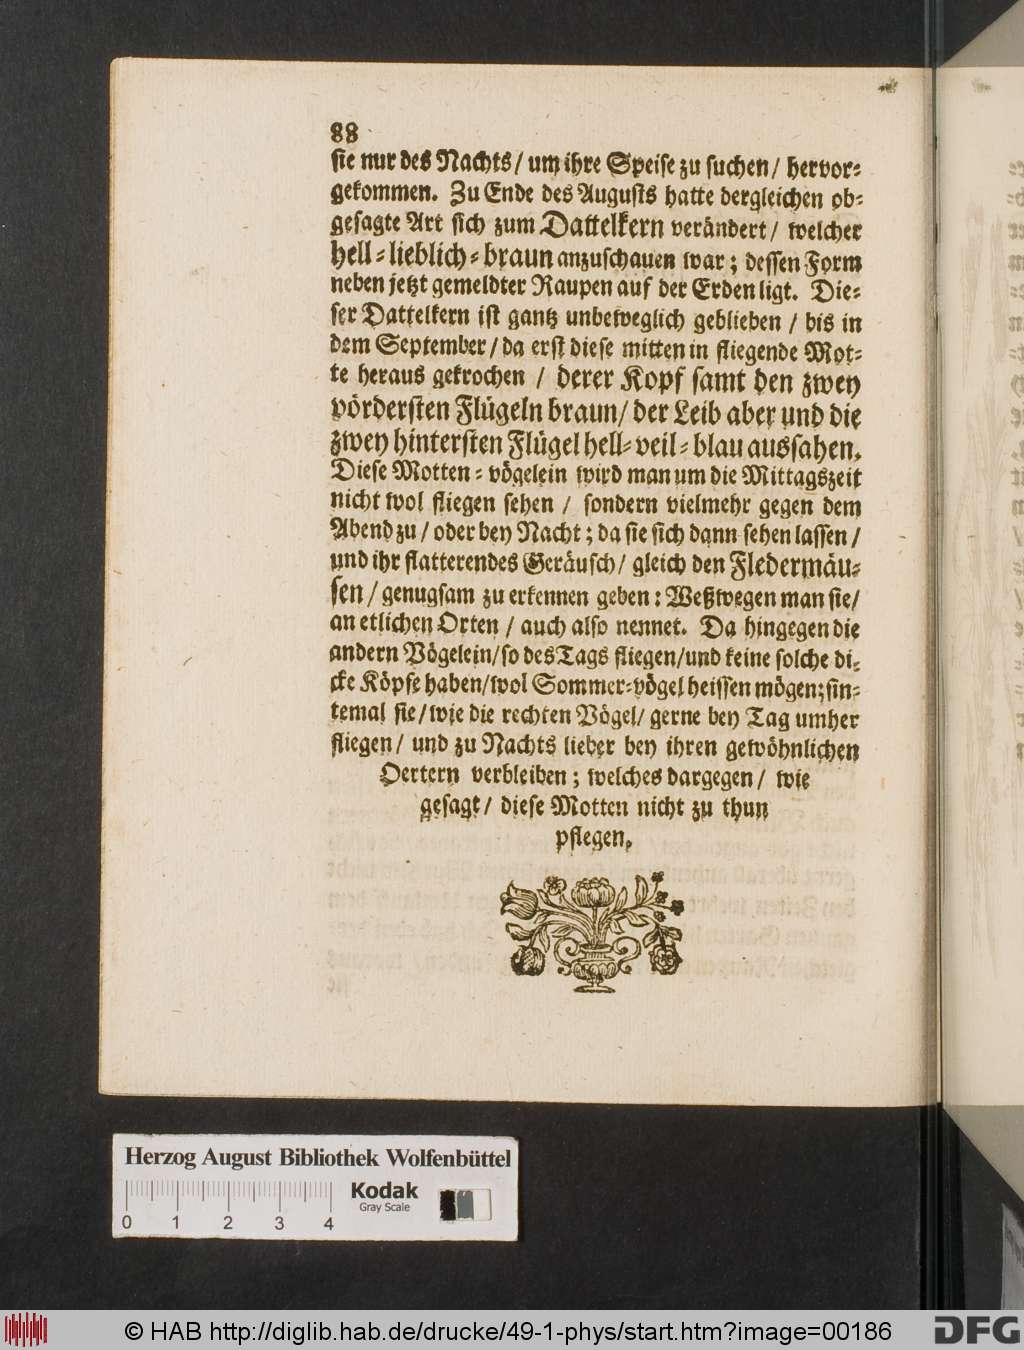 88
sie nur des Nachts / um ihre Speise zu suchen / hervor-
gekommen. Zu Ende des Augusts hatte dergleichen ob-
gesagte Art sich zum Dattelkern verändert / welcher
hell-lieblich-braun anzuschauen war; dessen Form
neben jetzt gemeldter Raupen auf der Erden ligt. Die-
ser Dattelkern ist gantz unbeweglich geblieben / bis in
dem September / da erst diese mitten in fliegende Mot-
te heraus gekrochen / derer Kopf samt den zwey
vördersten Flügeln braun / der Leib aber und die
zwey hintersten Flügel hell-veil-blau aussahen.
Diese Motten-vögelein wird man um die Mittagszeit
nicht wol fliegen sehen / sondern vielmehr gegen dem
Abend zu / oder bey Nacht; da sie sich dann sehen lassen /
und ihr flatterendes Geräusch / gleich den Fledermäu-
sen / genugsam zu erkennen geben: Weßwegen man sie /
an etlichen Orten / auch also nennet. Da hingegen die
andern Vögelein / so des Tags fliegen / und keine solche di-
cke Köpfe haben / wol Sommer-vögel heissen mögen; sin-
temal sie / wie die rechten Vögel / gerne bey Tag umher
fliegen / und zu Nachts lieber bey ihren gewöhnlichen
Oertern verbleiben; welches dargegen / wie
gesagt / diese Motten nicht zu thun
pflegen.
Herzog August Bibliothek Wolfenbüttel
Kodak
Gray Scale
0 1 2 3 4
© HAB http://diglib.hab.de/drucke/49-1-phys/start.htm?image=00186
DFG